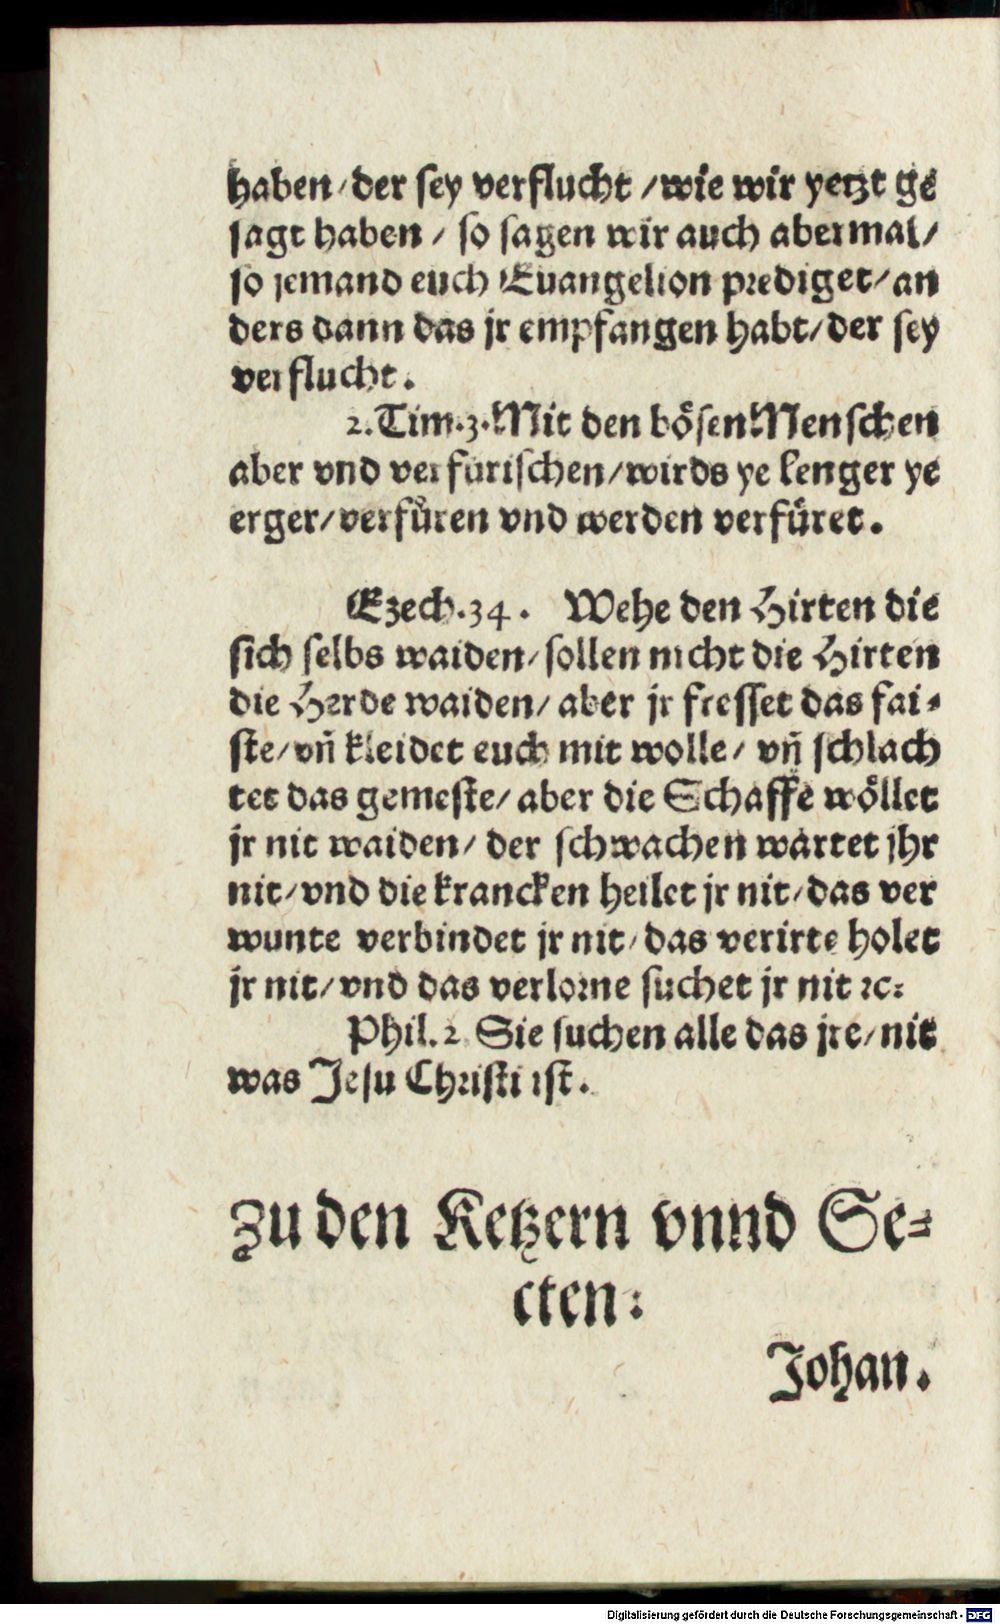 haben/der sey verflucht/wie wir yetzt ge
sagt haben/ so sagen wir auch abermal/
so jemand euch Euangelion prediget/an
ders dann das jr empfangen habt/der sey
verflucht.
2.Tim.3.Mit den bösen Menschen
aber vnd verfürischen/wirds ye lenger ye
erger/verfůren vnd werden verfüret.
Ezech.34. Wehe den Hirten die
sich selbs waiden/sollen nicht die Hirten
die Herde waiden/aber jr fresset das fai-
ste/vñ kleidet euch mit wolle/ vñ schlach
tet das gemeste/aber die Schaffe wöllet
jr nit waiden/ der schwachen wartet jhr
nit/vnd die krancken heilet jr nit/das ver
wunte verbindet jr nit/das verirte holet
jr nit/vnd das verlorne suchet jr nit ꝛc:
Phil.2. Sie suchen alle das jre/nit
was Jesu Christi ist.
Zu den Ketzern vnnd Se-
cten:
Johan.
Digitalisierung gefördert durch die Deutsche Forschungsgemeinschaft - DFG